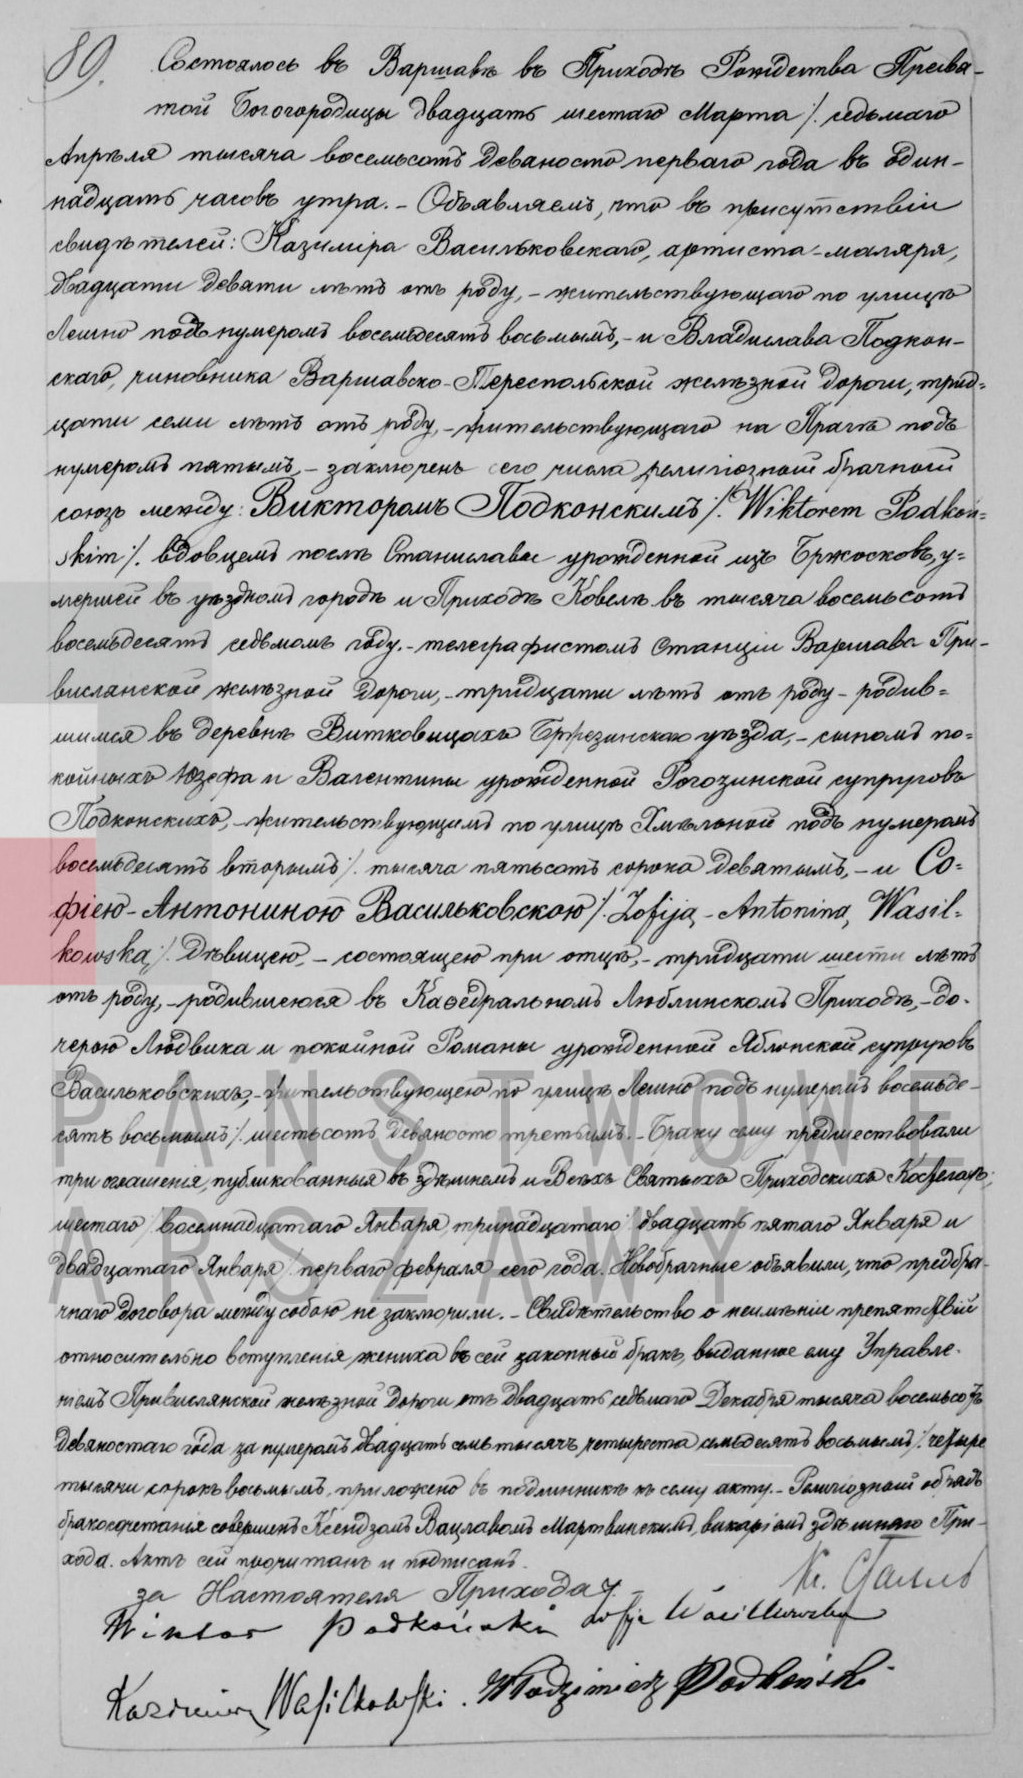 89. Состоялось въ Варшавѣ въ Приходѣ Рождества Пресвя-
той Богородицы двадцать шестаго Марта /. седьмаго
Апрѣля тысяча восемьсотъ девяносто перваго года въ один-
надцать часовъ утра. - Объявляемъ, что въ присутствіи
свидѣтелей: Казиміра Васильковскаго, артиста-маляра,
двадцати девяти лѣтъ отъ роду, - жительствующаго по улицѣ
Лешно подъ нумеромъ восемьдесятъ восьмымъ, - и Владислава Подкон-
скаго, чиновника Варшавско-Тереспольской желѣзной дороги, трид=
цати семи лѣтъ отъ роду, - жительствующаго на Прагѣ подъ
нумеромъ пятымъ, - заключенъ сего числа религіозный брачный
союзъ между: Викторомъ Подконскимъ /. Wiktorem Podkoń=
skim /. вдовцемъ послѣ Станиславы урожденной изъ Бржосковъ, у=
мершей въ уѣздномъ городѣ и Приходѣ Ковелѣ въ тысяча восемьсотъ
восемьдесятъ седьмомъ году. - телеграфистомъ Станціи Варшава При-
вислянской желѣзной дороги, - тридцати лѣтъ отъ роду - родив=
шимся въ деревнѣ Витковицахъ Бржезинскаго уѣзда, - сыномъ по=
койныхъ Юзефа и Валентины урожденной Рогозинской супруговъ
Подконскихъ, - жительствующимъ по улицѣ Хмѣльной подъ нумеромъ
восемьдесятъ вторымъ /. тысяча пятьсотъ сорока девятымъ, - и Со=
фіею-Антониною Васильковскою /. Zofiją-Antoniną Wasil=
kowską /. дѣвицею, - состоящею при отцѣ, - тридцати шести лѣтъ
отъ роду, - родившеюся въ Каѳедральномъ Люблинскомъ Приходѣ, - до-
черью Людвика и покойной Романы урожденной Яблонской супруговъ
Васильковскихъ, - жительствующею по улицѣ Лешно подъ нумеромъ восемьде-
сятъ восьмымъ /. шестьсотъ девяносто третьимъ. - Браку сему предшествовали
три оглашенія, публикованныя въ здѣшнемъ и Всѣхъ Святыхъ Приходскихъ Костелахъ,
шестаго / восемнадцатаго Января, тринадцатаго / двадцать пятаго Января и
двадцатаго Января / перваго февраля сего года. Новобрачные объявили, что предбра-
чнаго договора между собою не заключили. - Свидѣтельство о неимѣніи препятствій
относительно вступленія жениха въ сей законный бракъ, выданное ему Управле-
ніемъ Привислянской желѣзной дороги отъ двадцать седьмаго Декабря тысяча восемьсотъ
девяностаго года за нумеромъ двадцать семь тысячъ четыреста семьдесятъ восьмымъ /. четыре
тысячи сорокъ восьмымъ, приложено въ подлинникѣ къ сему акту. - Религіозный обрядъ
бракосочетанія совершенъ Ксендзомъ Вацлавомъ Мартвинскимъ, викаріемъ здѣшняго При-
хода. Актъ сей прочитанъ и подписанъ.
за Настоятеля Прихода
Wiktor Podkoński Zofja Wasilkowska
Kazimierz Wasilkowski. Włodzimierz Podkoński
PAŃSTWOWE
ARSZAWY